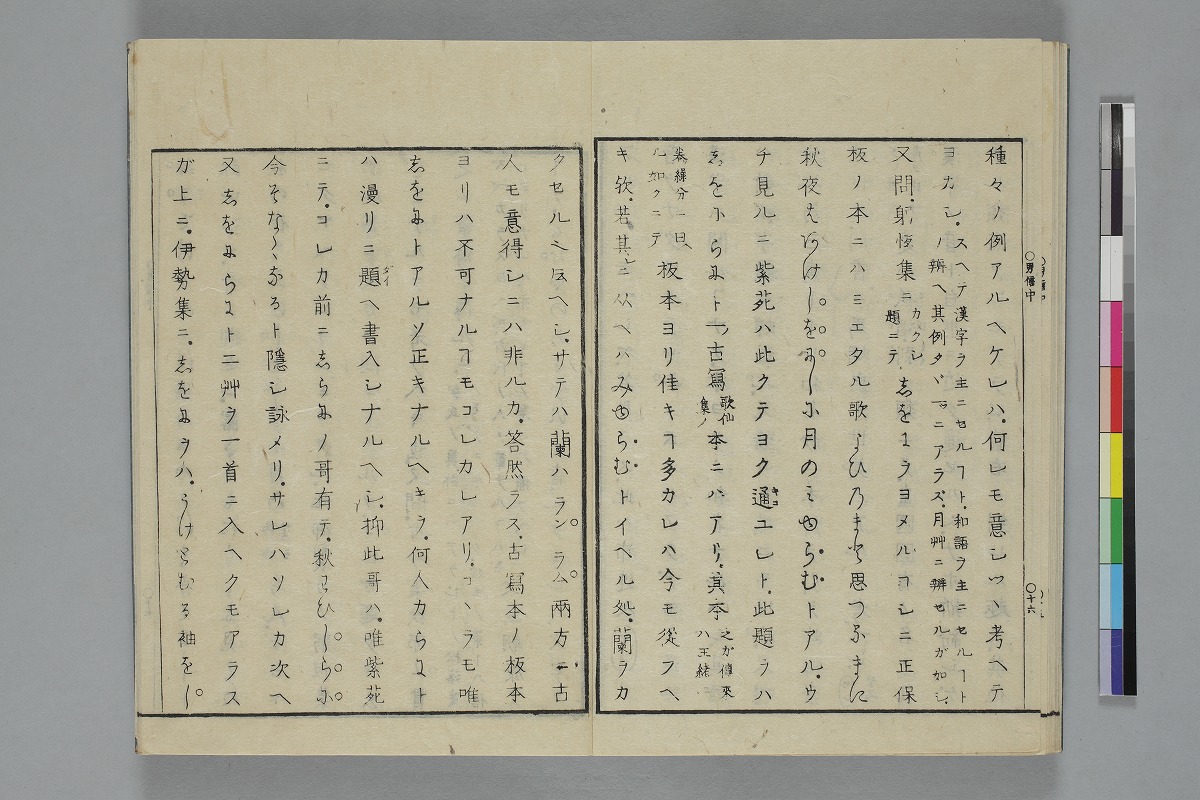 種々ノ例アルヘケレハ。何レモ意シツヽ考ヘテ
ヨカシ。スヘテ漢字ヲ主ニセルヿト。和語ヲ主ニセルヿト
ノ辨ヘ其例タヾ一ツニアラズ。月艸ニ辨セルガ如シ。
又問。躬恒集ニ カクシ題ニテ しをにヲヨメルヿシニ正保
板ノ本ニハミエタル歌よひ乃まに思つるまに
秋夜はあけしをにしに月のみやらむトアル。ウ
チ見ルニ紫苑ハ此クテヨク通ユレト。此題ヲハ
しをにらにト一古寫 歌仙集ノ 本ニハアリ。其本 之カ傳來ハ王緒
ル如クニテ 板本ヨリ佳キヿ多カレハ今モ従フヘ
キ欤。若其レニ从ヘハみやらむトイヘル処。蘭ヲカ
クセルト云ヘシ。サテハ蘭ハランラム兩方ニ古
人モ意得シニハ非ルカ。答然ラス。古寫本ノ板本
ヨリハ不可ナルヿモコレカレアリ。コヽラモ唯
しをにトアルソ正キナルヘキヲ。何人カらにト
ハ漫リニ題ヘ書入シナルヘシ。抑此哥ハ。唯紫苑
ニテ。コレカ前ニしらにノ哥有テ。秋こひしらに
今そなくなるト隱シ詠メリ。サレハソレカ次ヘ
又しをにらにト二艸ヲ一首ニ入ヘクモアラス
ガ上ニ。伊勢集ニ。しをにヲハ。うけとむる袖をし
十六